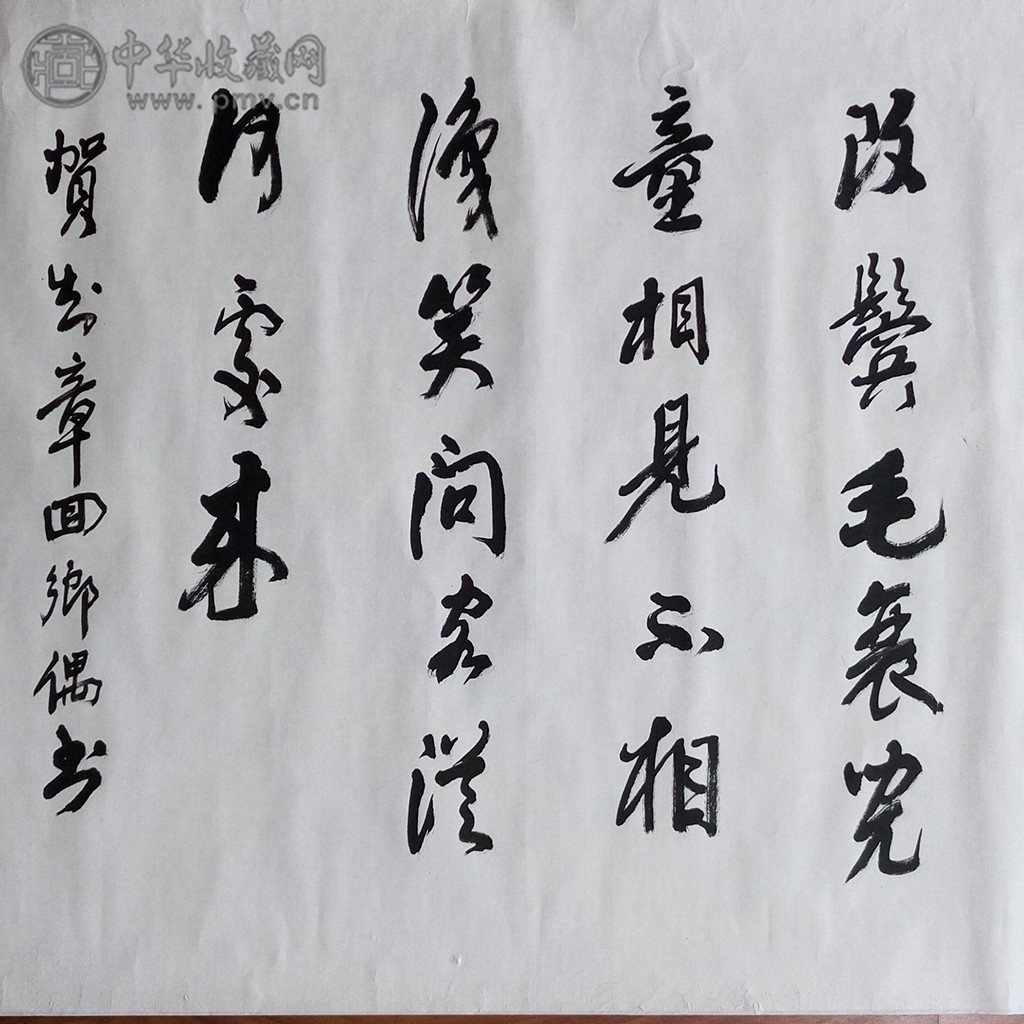 中华收藏网
www.pmv.cn
改鬢毛衰兒
童相見不相
識笑問客從
何處来
賀知章回鄉偶书